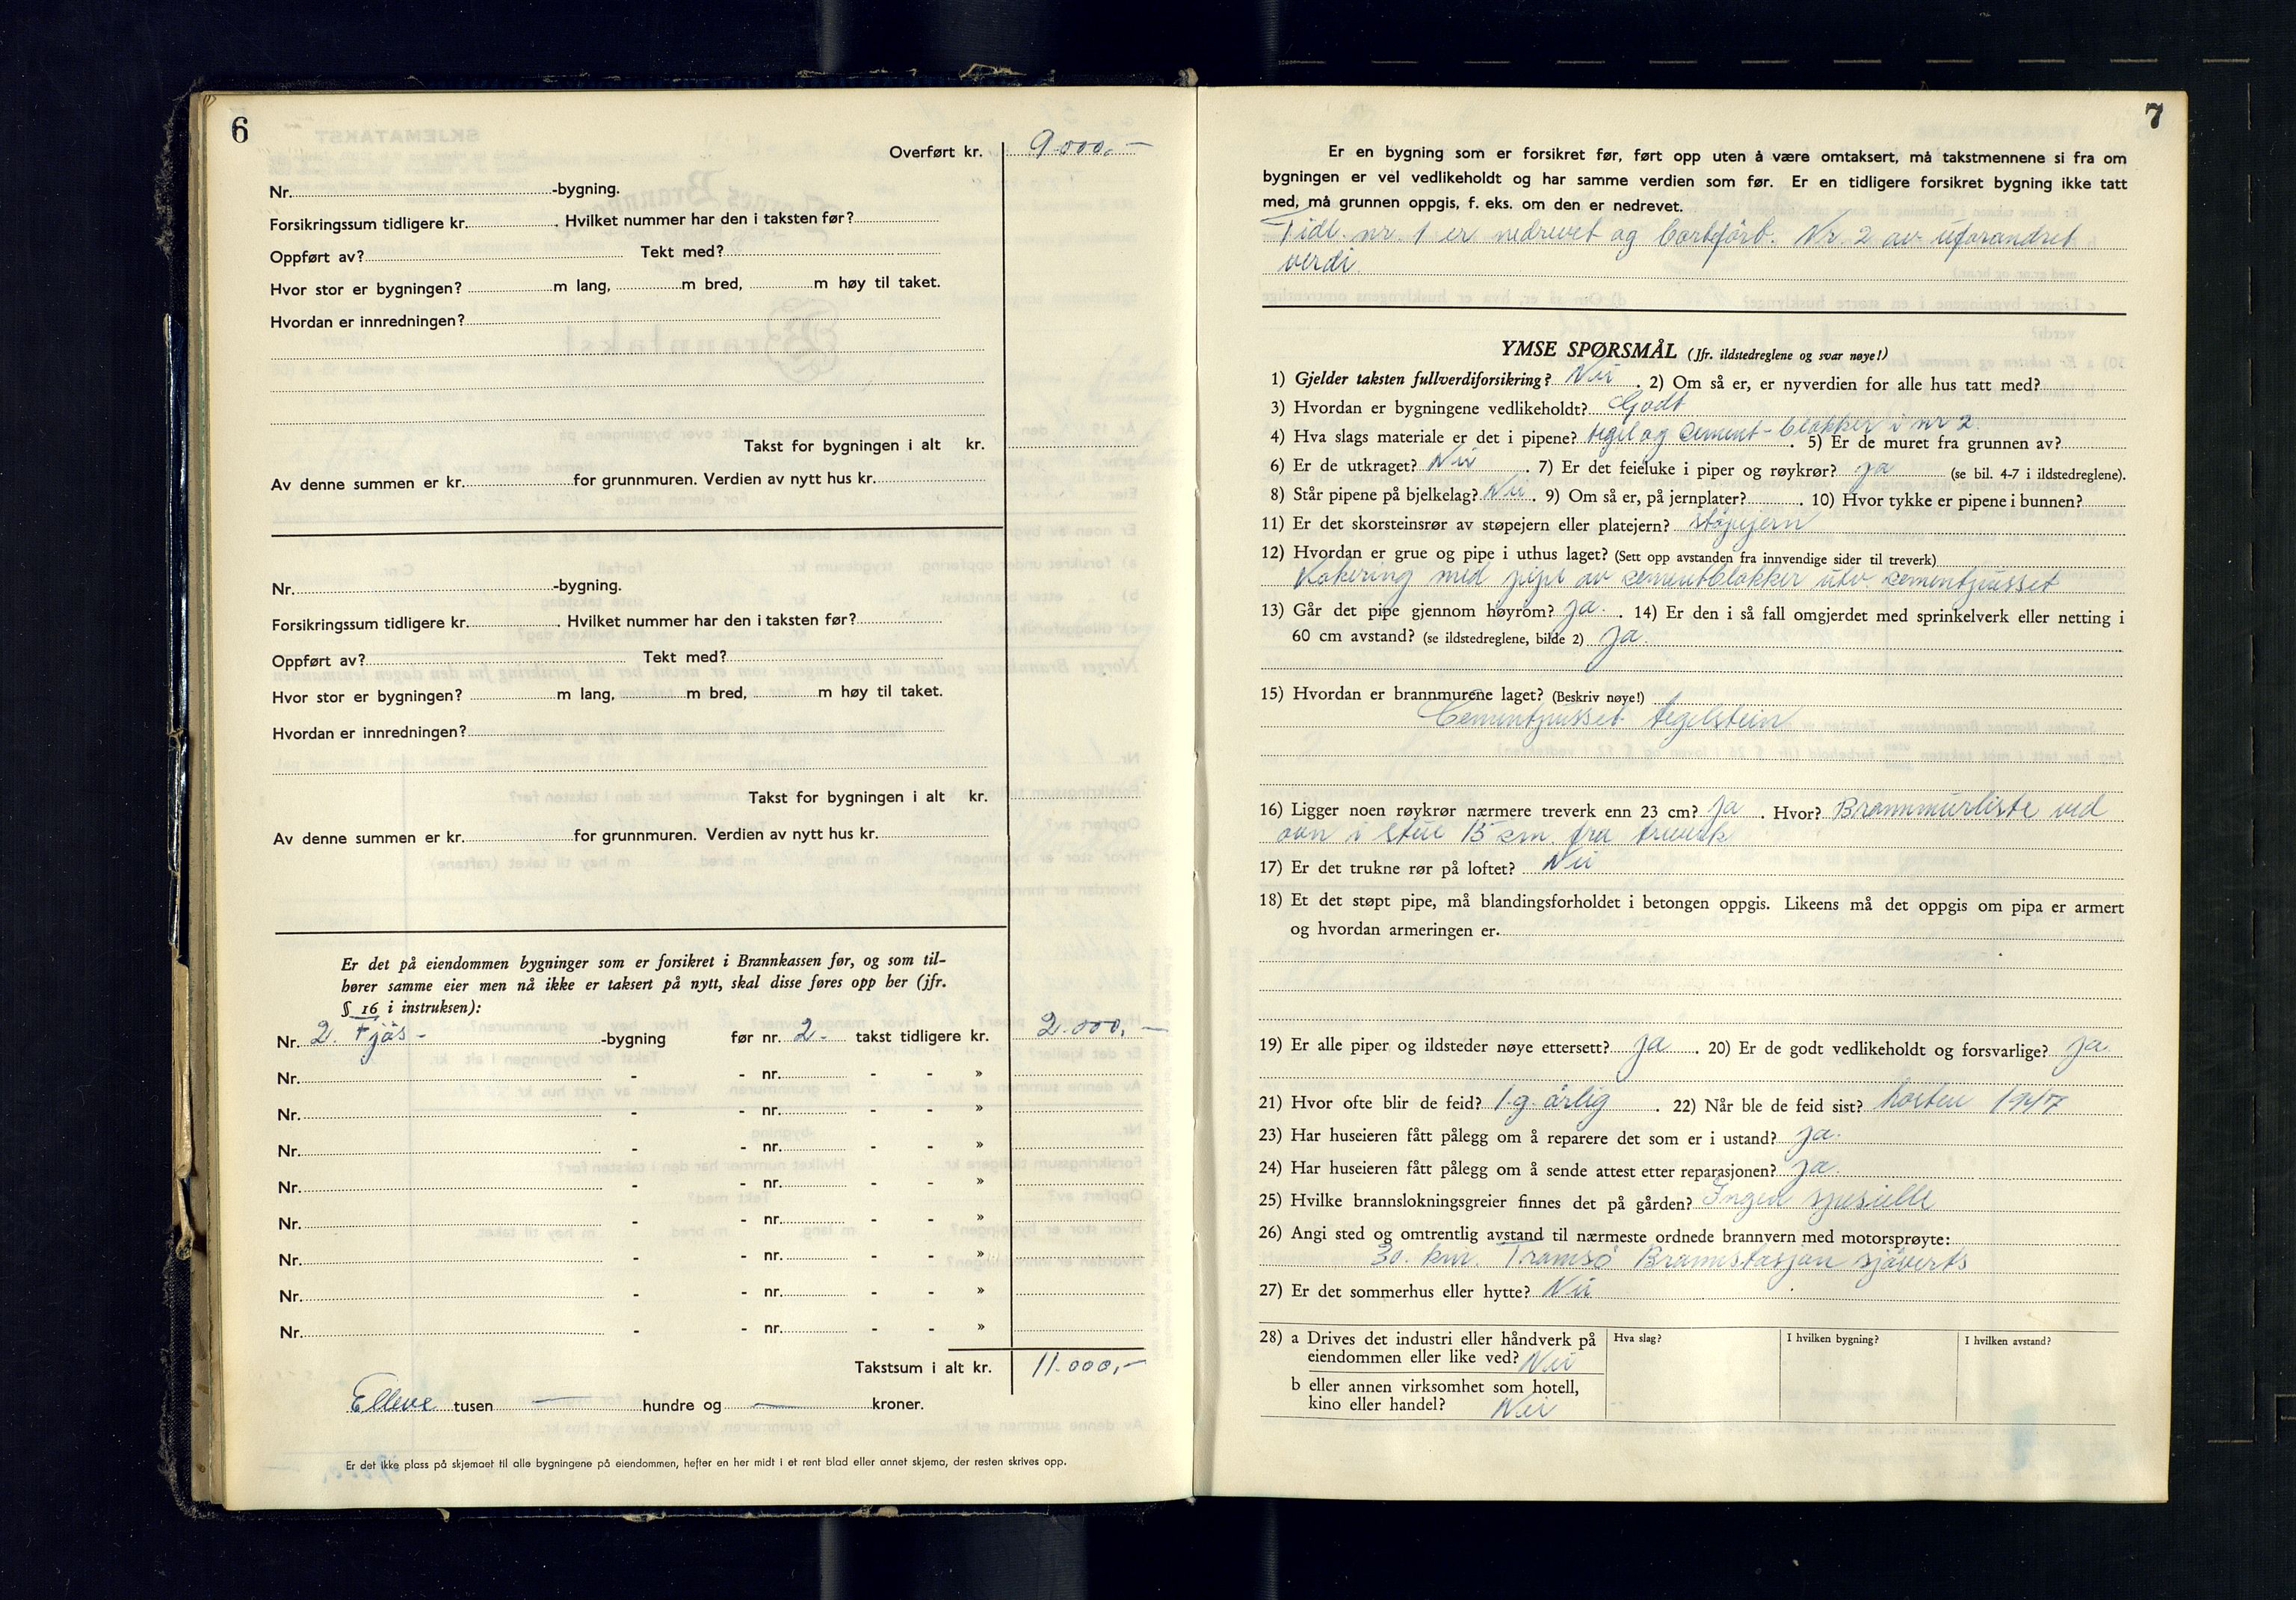 6
Overført kr. 9.000,-
Nr. -bygning.
Forsikringssum tidligere kr. . Hvilket nummer har den i taksten før?
Oppført av? Tekt med?
Hvor stor er bygningen? m lang, m bred, m høy til taket.
Hvordan er innredningen?
Takst for bygningen i alt kr.
Av denne summen er kr. for grunnmuren. Verdien av nytt hus kr.
Nr. -bygning.
Forsikringssum tidligere kr. . Hvilket nummer har den i taksten før?
Oppført av? Tekt med?
Hvor stor er bygningen? m lang, m bred, m høy til taket.
Hvordan er innredningen?
Takst for bygningen i alt kr.
Av denne summen er kr. for grunnmuren. Verdien av nytt hus kr.
Er det på eiendommen bygninger som er forsikret i Brannkassen før, og som til-
hører samme eier men nå ikke er taksert på nytt, skal disse føres opp her (jfr.
§ 16 i instruksen):
Nr. 2. Fjøs - -bygning før nr. 2- takst tidligere kr. 2.000,-
Nr. - - nr. - - »
Nr. - - nr. - - »
Nr. - - nr. - - »
Nr. - - nr. - - »
Nr. - - nr. - - »
Nr. - - nr. - - »
Nr. - - nr. - - »
Nr. - - nr. - - »
Takstsum i alt kr. 11.000,-
Elleve tusen — hundre og — kroner.
Er det ikke plass på skjemaet til alle bygningene på eiendommen, hefter en her midt i et rent blad eller annet skjema, der resten skrives opp.
7
Er en bygning som er forsikret før, ført opp uten å være omtaksert, må takstmennene si fra om
bygningen er vel vedlikeholdt og har samme verdien som før. Er en tidligere forsikret bygning ikke tatt
med, må grunnen oppgis, f. eks. om den er nedrevet.
Tidl. nr. 1 er nedrevet og bortført. Nr. 2 av uforandret
verdi.
YMSE SPØRSMÅL (Jfr. ildstedreglene og svar nøye!)
1) Gjelder taksten fullverdiforsikring? Nei . 2) Om så er, er nyverdien for alle hus tatt med?
3) Hvordan er bygningene vedlikeholdt? Godt
4) Hva slags materiale er det i pipene? tegl og cement-blokker i nr 2. . 5) Er de muret fra grunnen av?
6) Er de utkraget? Nei . 7) Er det feieluke i piper og røykrør? ja (se bil. 4-7 i ildstedreglene).
8) Står pipene på bjelkelag? Nei . 9) Om så er, på jernplater? . 10) Hvor tykke er pipene i bunnen?
11) Er det skorsteinsrør av støpejern eller platejern? støpejern
12) Hvordan er grue og pipe i uthus laget? (Sett opp avstanden fra innvendige sider til treverk)
Kokering med pipe av cementblokker utv. cementpusset
13) Går det pipe gjennom høyrom? ja. . 14) Er den i så fall omgjerdet med sprinkelverk eller netting i
60 cm avstand? (se ildstedreglene, bilde 2) ja.
15) Hvordan er brannmurene laget? (Beskriv nøye!)
Cementpusset teglstein
16) Ligger noen røykrør nærmere treverk enn 23 cm? ja . Hvor? Brannmurliste ved
ovn i stue 15 cm. fra treverk
17) Er det trukne rør på loftet? Nei
18) Et det støpt pipe, må blandingsforholdet i betongen oppgis. Likeens må det oppgis om pipa er armert
og hvordan armeringen er.
19) Er alle piper og ildsteder nøye ettersett? ja . 20) Er de godt vedlikeholdt og forsvarlige? ja
21) Hvor ofte blir de feid? 1.g. årlig . 22) Når ble de feid sist? høsten 1947
23) Har huseieren fått pålegg om å reparere det som er i ustand? ja.
24) Har huseieren fått pålegg om å sende attest etter reparasjonen? ja.
25) Hvilke brannslokningsgreier finnes det på gården? Ingen spesielle
26) Angi sted og omtrentlig avstand til nærmeste ordnede brannvern med motorsprøyte:
30. km. Tromsø Brannstasjon sjøverts
27) Er det sommerhus eller hytte? Nei
28) a Drives det industri eller håndverk på Hva slag? I hvilken bygning? I hvilken avstand?
eiendommen eller like ved? Nei
b eller annen virksomhet som hotell,
kino eller handel? Nei